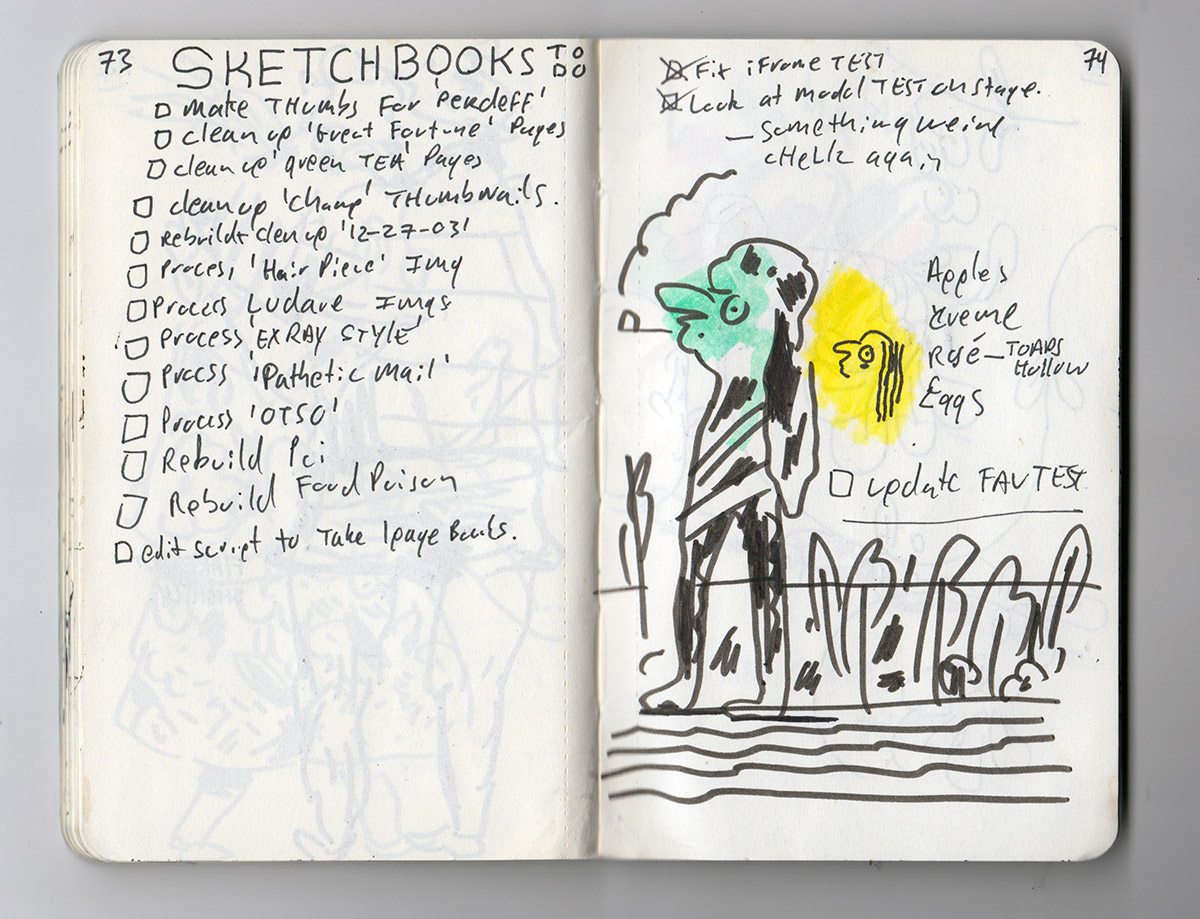 73
SKETCHBOOKS TO DO
Make THumbs For 'Perdeff'
clean up 'Great Fortune' Pages
clean up 'green TEA' Pages
clean up 'Champ' THumbNails.
Rebuild + clen up '12-27-03'
Process 'Hair Piece' Img
Process Ludave Imgs
Process 'EXRAY STYLE'
Process 'Pathetic Mail'
Process 'OTSO'
Rebuild Pci
Rebuild Food Poison
edit script to Take 1page Books.
74
Fix iFrame TEST
Look at modal TEST on stage.
— Something weird
cHeck again
Apples
Creme
Rosé — TOADS
Hollow
Eggs
update FAV TEST